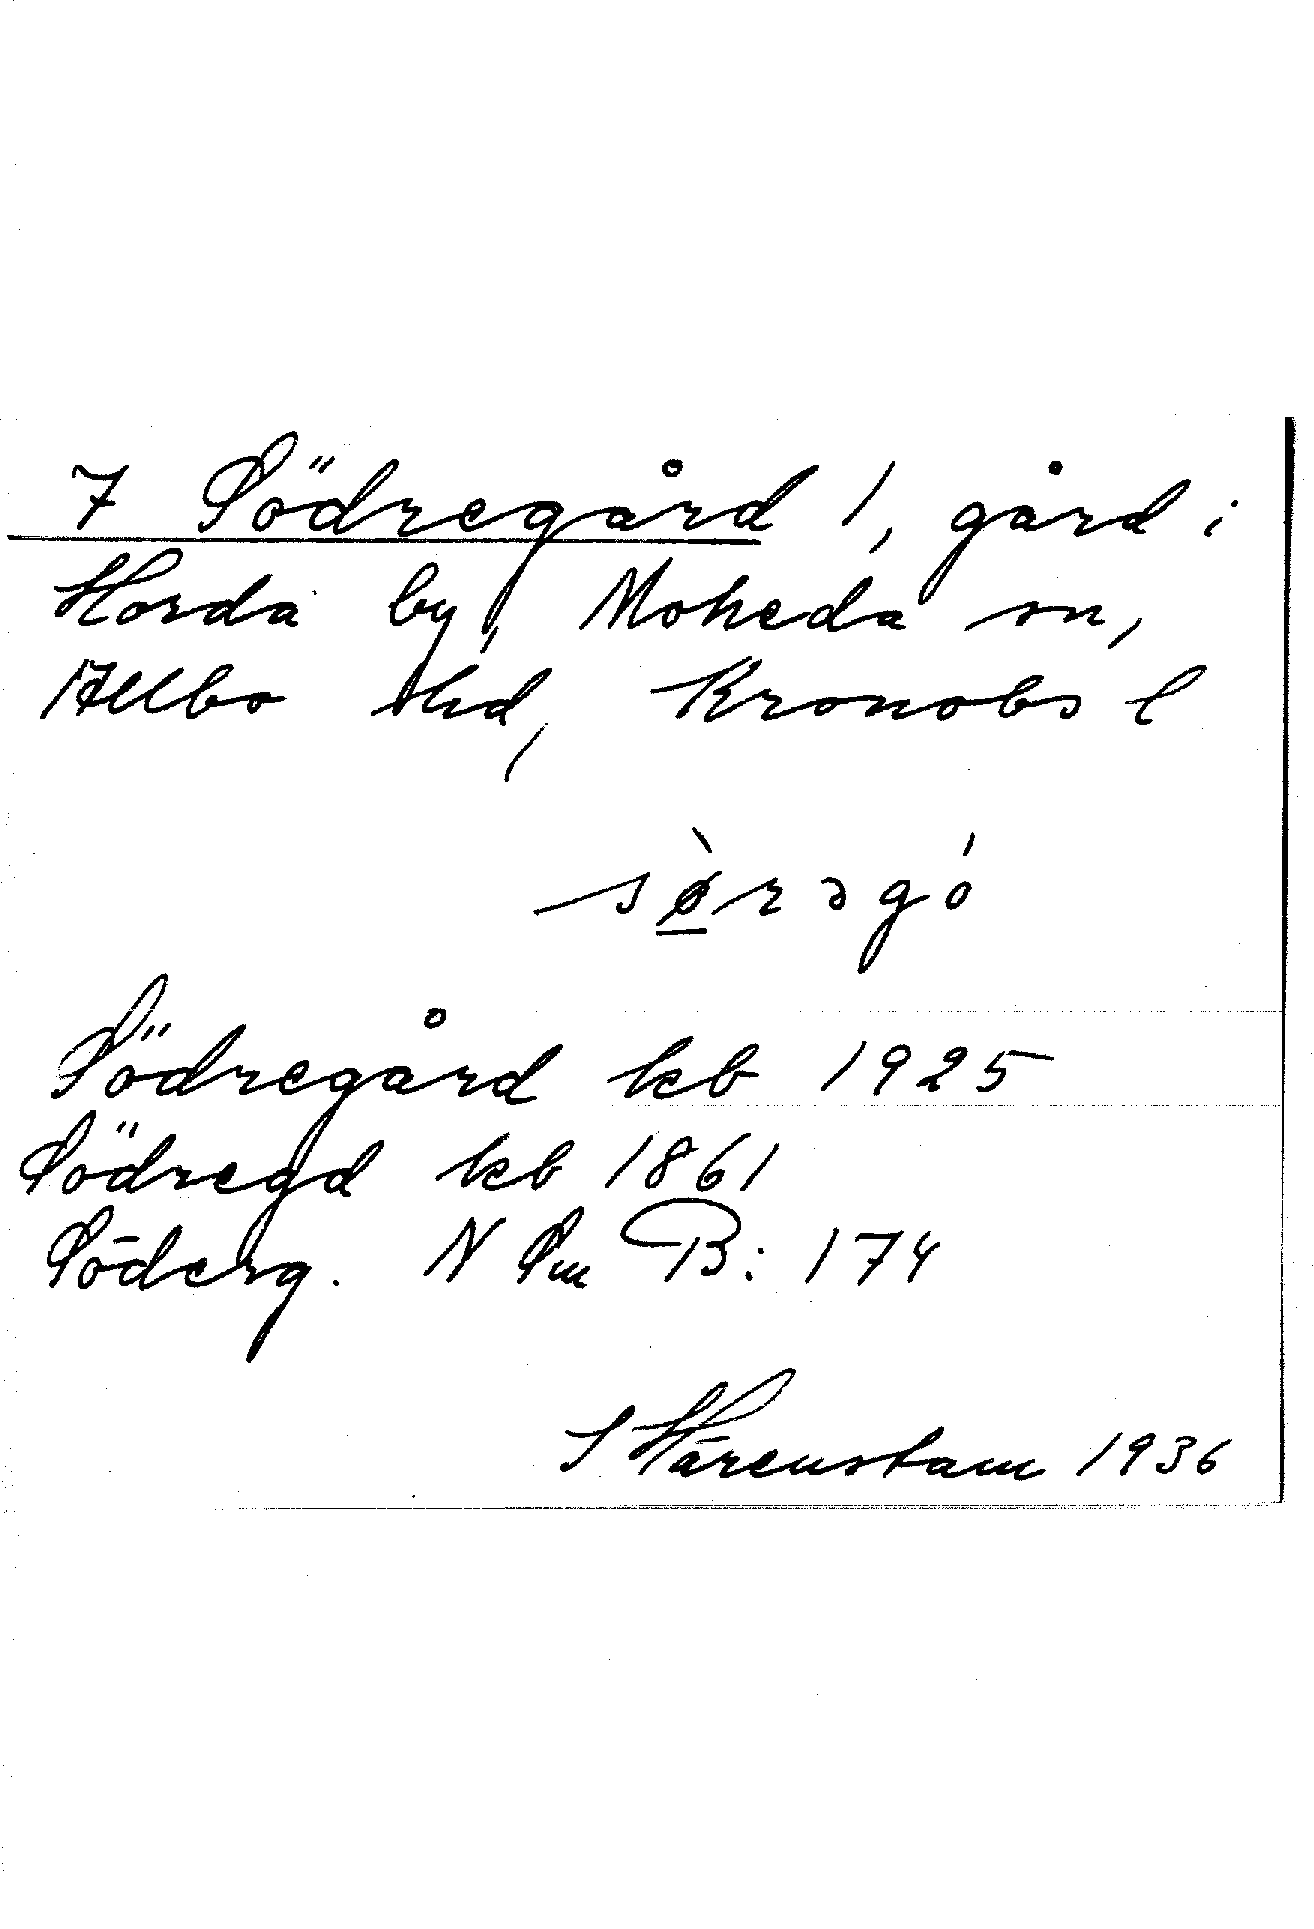 7 Södregård 1, gård i
Horda by, Moheda sn,
Allbo hd, Kronobs l
sø̀rəgó
Södregård kb 1925
Södregd kb 1861
Söderg. N Sm B: 174
S Härenstam 1936